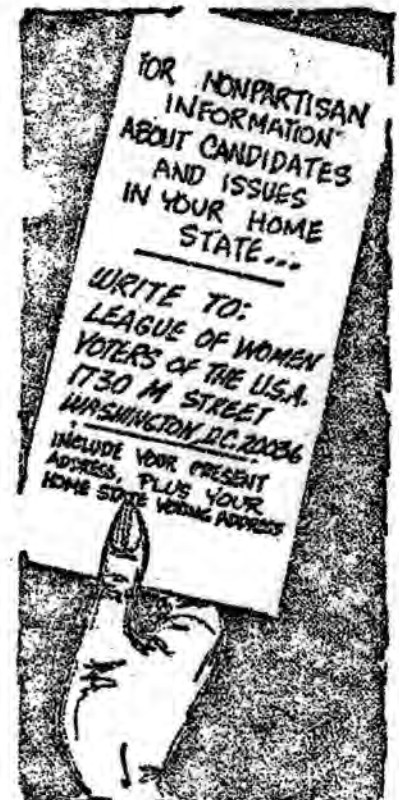 FOR NONPARTISAN
INFORMATION
ABOUT CANDIDATES
AND ISSUES
IN YOUR HOME
STATE...
WRITE TO:
LEAGUE OF WOMEN
VOTERS OF THE U.S.A.
1730 M STREET
WASHINGTON, D.C. 20036
INCLUDE YOUR PRESENT
ADDRESS, PLUS YOUR
HOME STATE VOTING ADDRESS